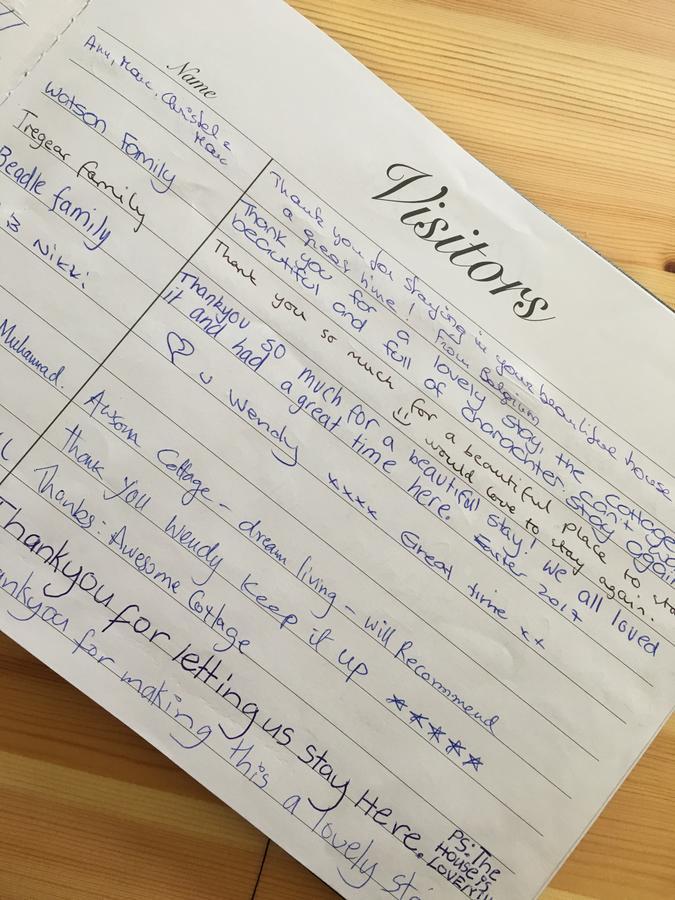 Name
Visitors
Ann, Marc, Christel &
Marc
Thank you for staying in your beautiful house
a great time! From Belgium
Watson Family
Thank you for a lovely stay, the cottage
beautiful and full of charachter. can't
stay again
Tregear family
Thank you so much for a beautiful place to
would love to stay again.
Beadle family
Thankyou so much for a beautiful stay! We all loved
it and had a great time here. Easter 2017
B Nikki
♡ u Wendy xxxx Great time xx
Muhammad.
Awsom Cottage - dream living - will Recommend
thank you Wendy keep it up *****
Thanks: Awesome Cottage
Thankyou for letting us stay Here.
PS: The
House is
LOVELY!!
for making this a lovely